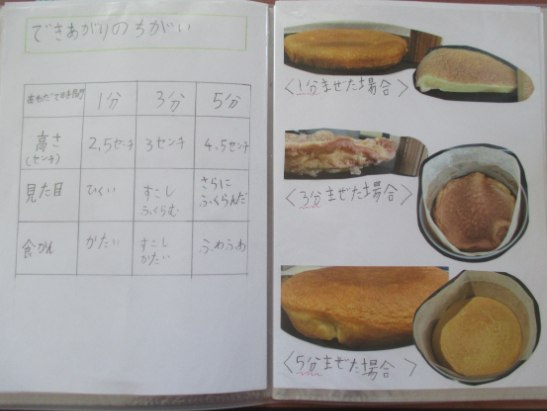 できあがりのちがい
あわだて時間 1分 3分 5分
高さ
(センチ) 2,5センチ 3センチ 4,5センチ
見た目 ひくい すこし
ふくらむ さらに
ふくらんだ
食かん かたい すこし
かたい ふわふわ
〈1分まぜた場合〉
〈3分まぜた場合〉
〈5分まぜた場合〉